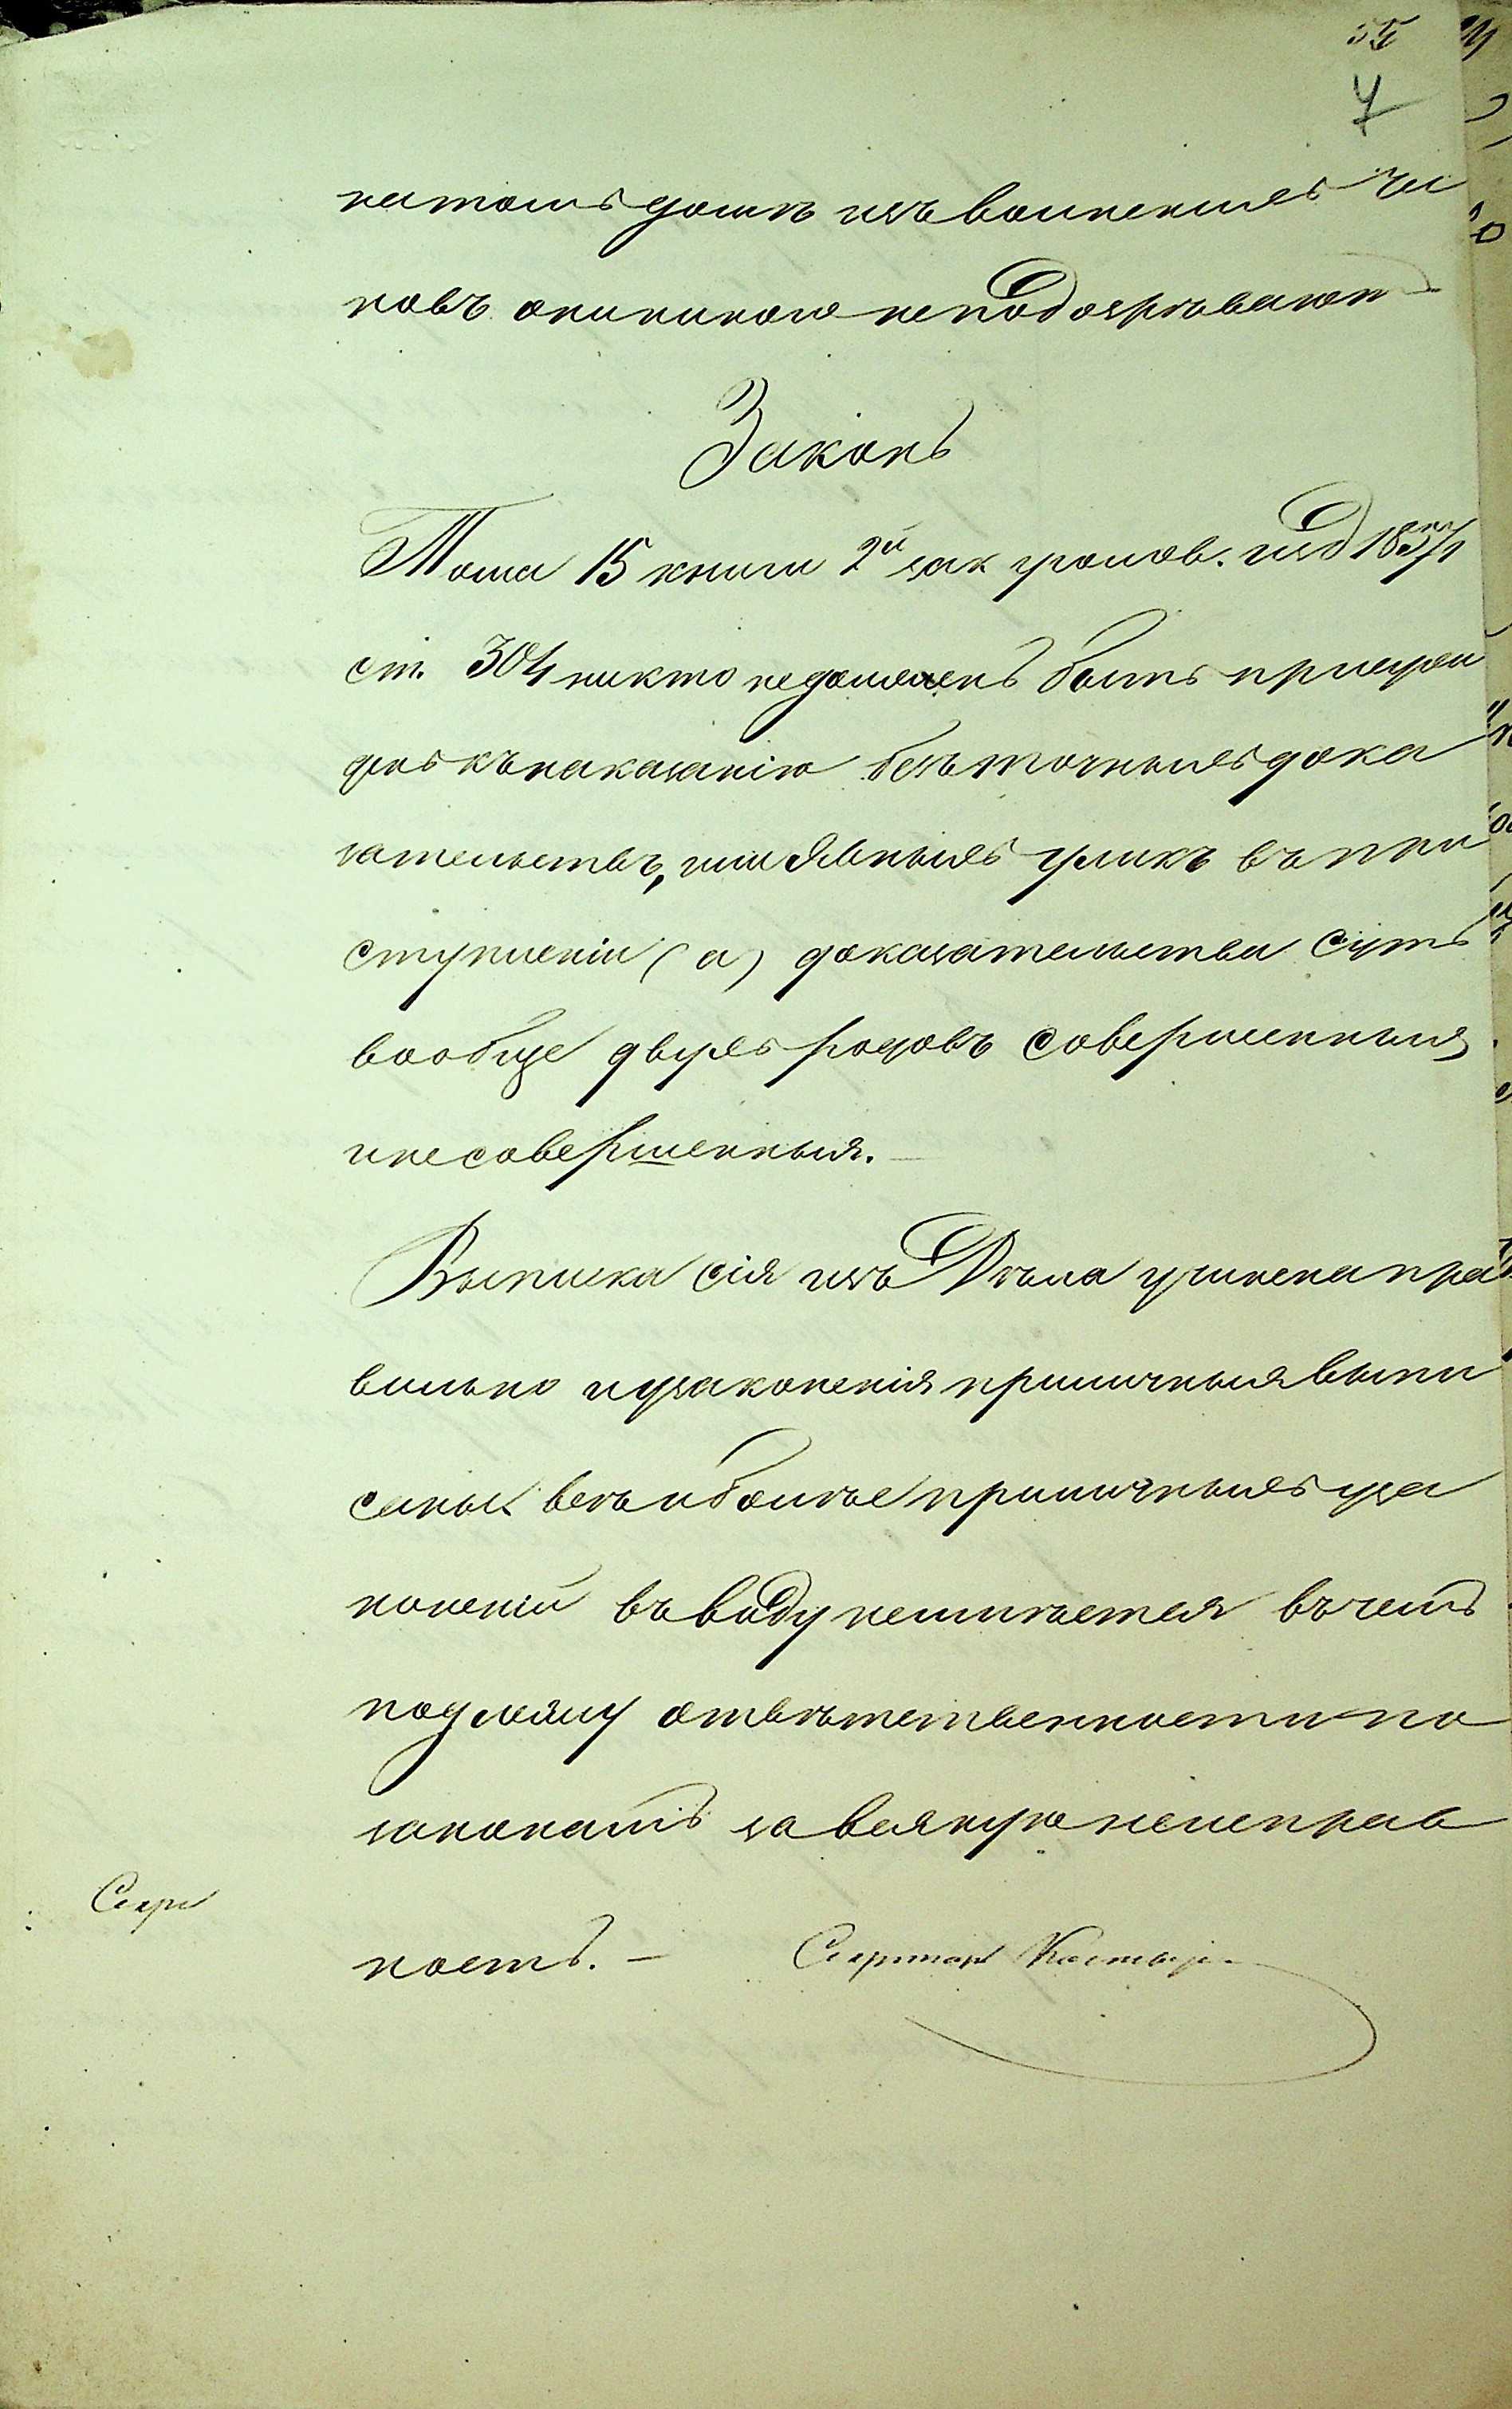 7
на томъ домъ изъ воинскихъ чи
новъ они никого не подозрѣваютъ
Законъ
Тома 15 книги 2й зак уголов. изд 1857 г
ст. 304 никто не долженъ быть присуж
денъ къ наказанію безъ точныхъ дока
зательствъ, или явныхъ уликъ въ пре
ступленіи (а) доказательства суть
вообще двухъ родовъ совершенныя
и несовершенныя.
Выписка сія изъ Дѣла учинена пра
вильно и узаконенія приличныя выпи
саны всѣ и болѣе приличныхъ уза
коненій въ виду не имѣется въ чемъ
подлежу отвѣтственности по
законамъ за всякую неисправ
ность. — Секретарь
Секре